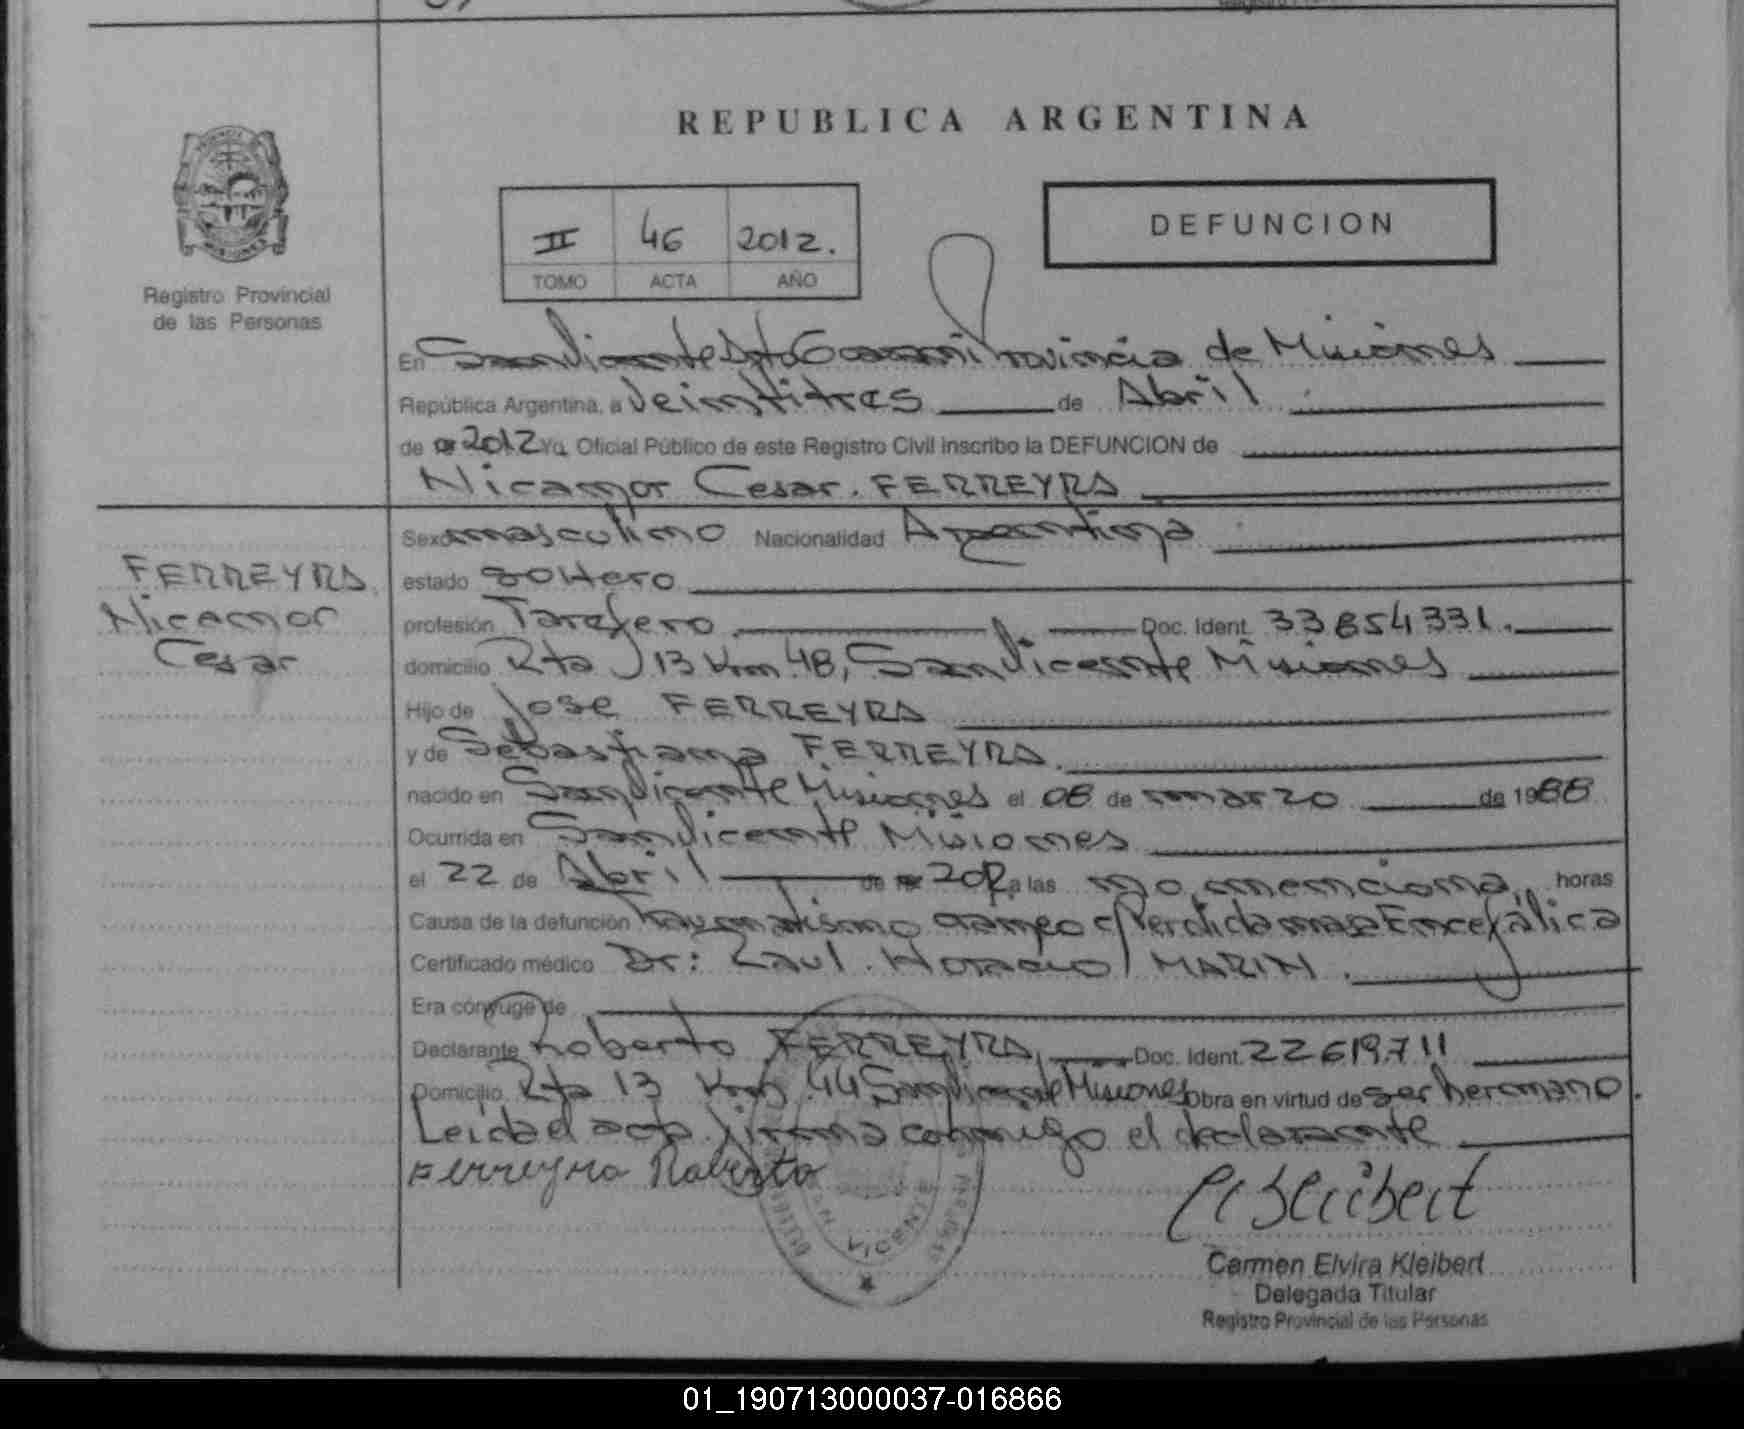 REPUBLICA ARGENTINA
DEFUNCION
II 46 2012.
TOMO ACTA AÑO
Registro Provincial
de las Personas
En San Vicente Dpto Guarani Provincia de Misiones
República Argentina, a Veintitres de Abril
de 2012 Yo, Oficial Público de este Registro Civil inscribo la DEFUNCION de
Nicanor Cesar. FERREYRA
FERREYRA
Nicanor
Cesar
Sexo masculino Nacionalidad Argentina
estado soltero
profesión Tarefero Doc. Ident. 33.854.331.
domicilio Rta 13 Km 48, San Vicente Misiones
Hijo de Jose FERREYRA
y de Sebastiana FERREYRA.
nacido en San Vicente Misiones el 08 de marzo de 1988
Ocurrida en San Vicente Misiones
el 22 de Abril de 2012 a las no menciona, horas
Causa de la defunción traumatismo craneo c/Perdida masa Encefálica
Certificado médico Dr: Raul. Horacio MARIN.
Era cónyuge de
Declarante Roberto FERREYRA, Doc. Ident. 22.619.711
Domicilio Rta 13 Km 44 San Vicente Misiones Obra en virtud de ser hermano.
Leida el acta firma conmigo el declarante
Ferreyra Roberto
VICENTE
Carmen Elvira Kleibert
Delegada Titular
Registro Provincial de las Personas
01_190713000037-016866